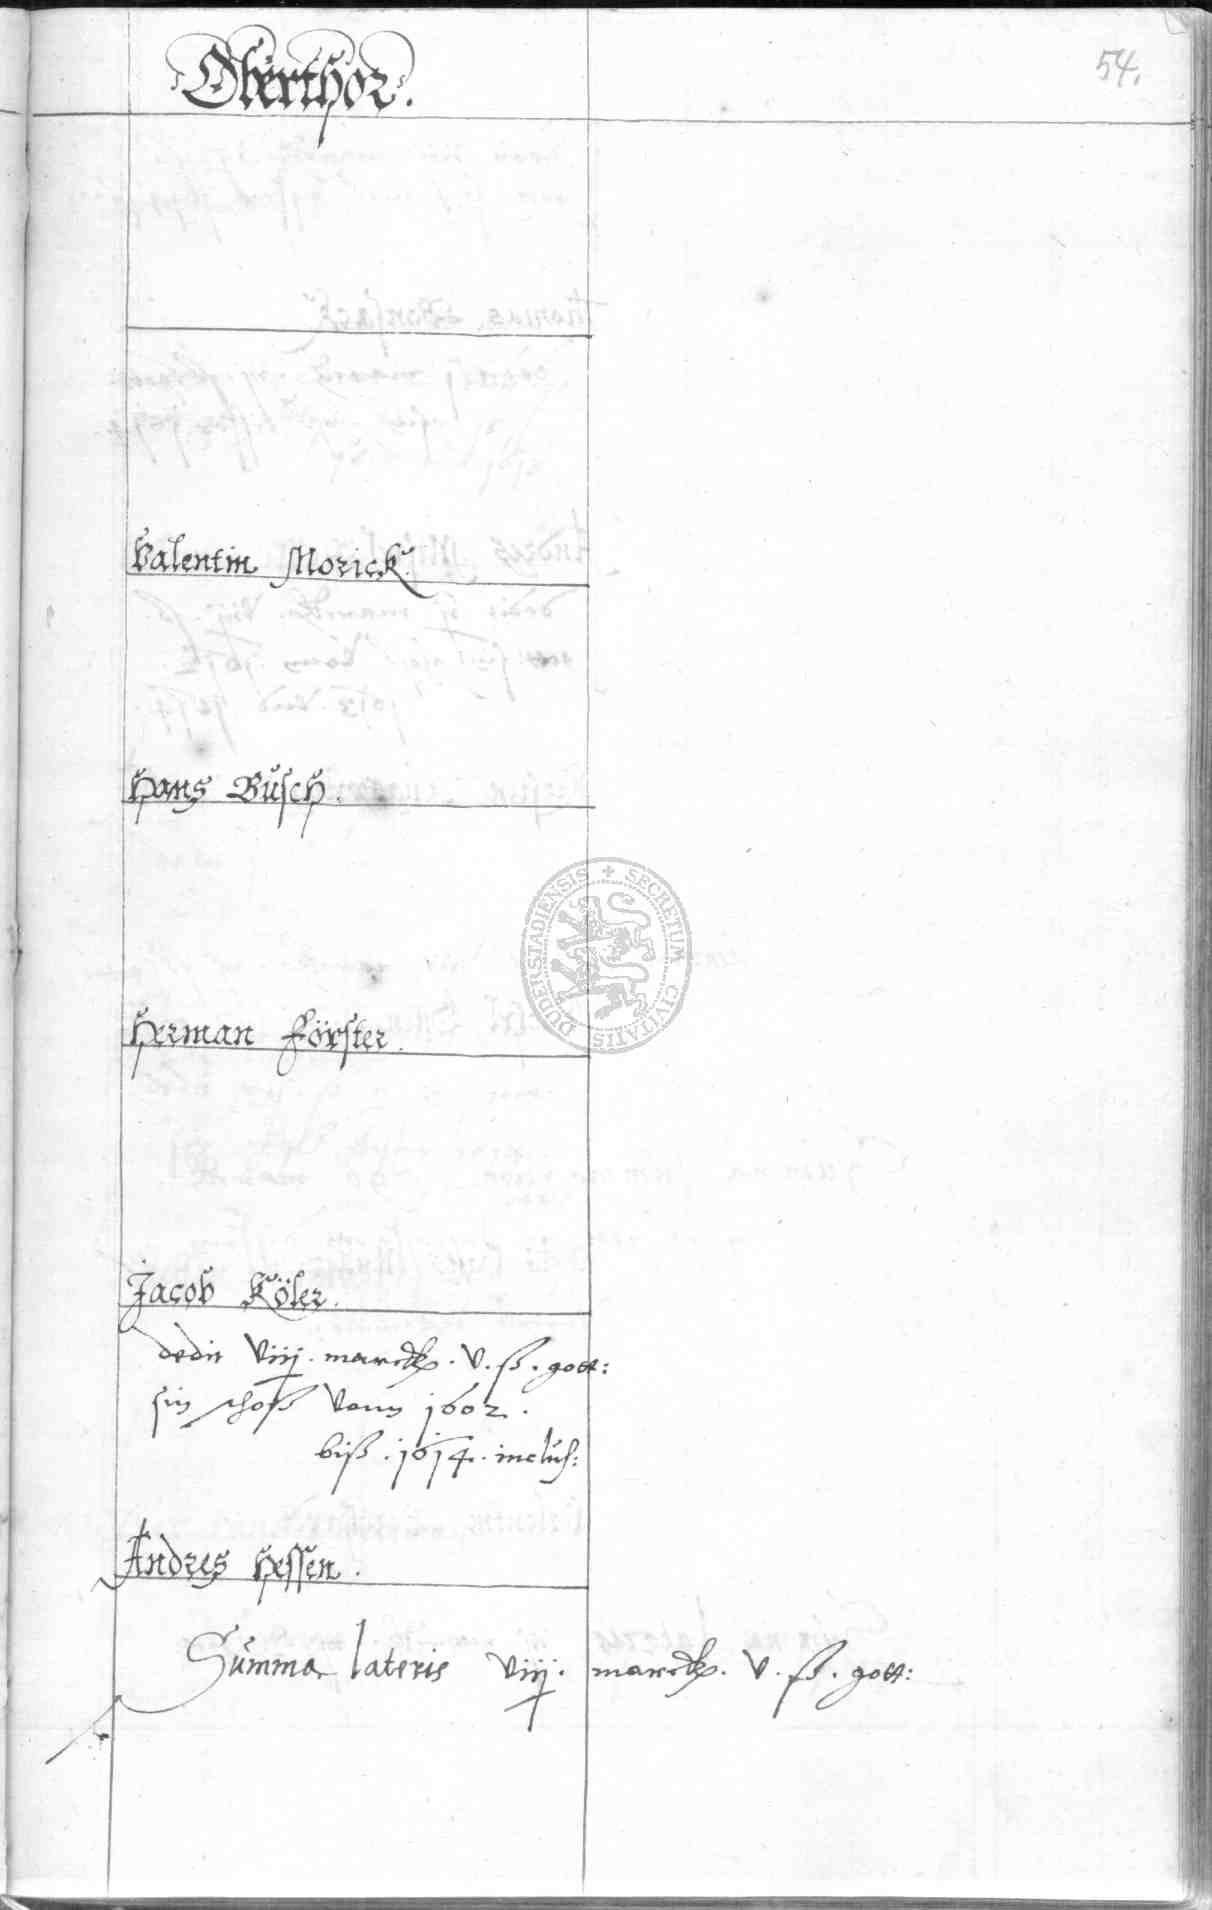 Oberthor.
54.
Valentin Morick.
Hans Busch.
Herman Förster.
Jacob Köler.
dedit viiij. marck. v. ß. gott:
sin schoß vonn 1602.
biß. 1614. inclus:
Andres Hessen.
Summa lateris viiij. marck. v. ß. gott:
SECRETUM CIVITATIS DUDERSTADIENSIS